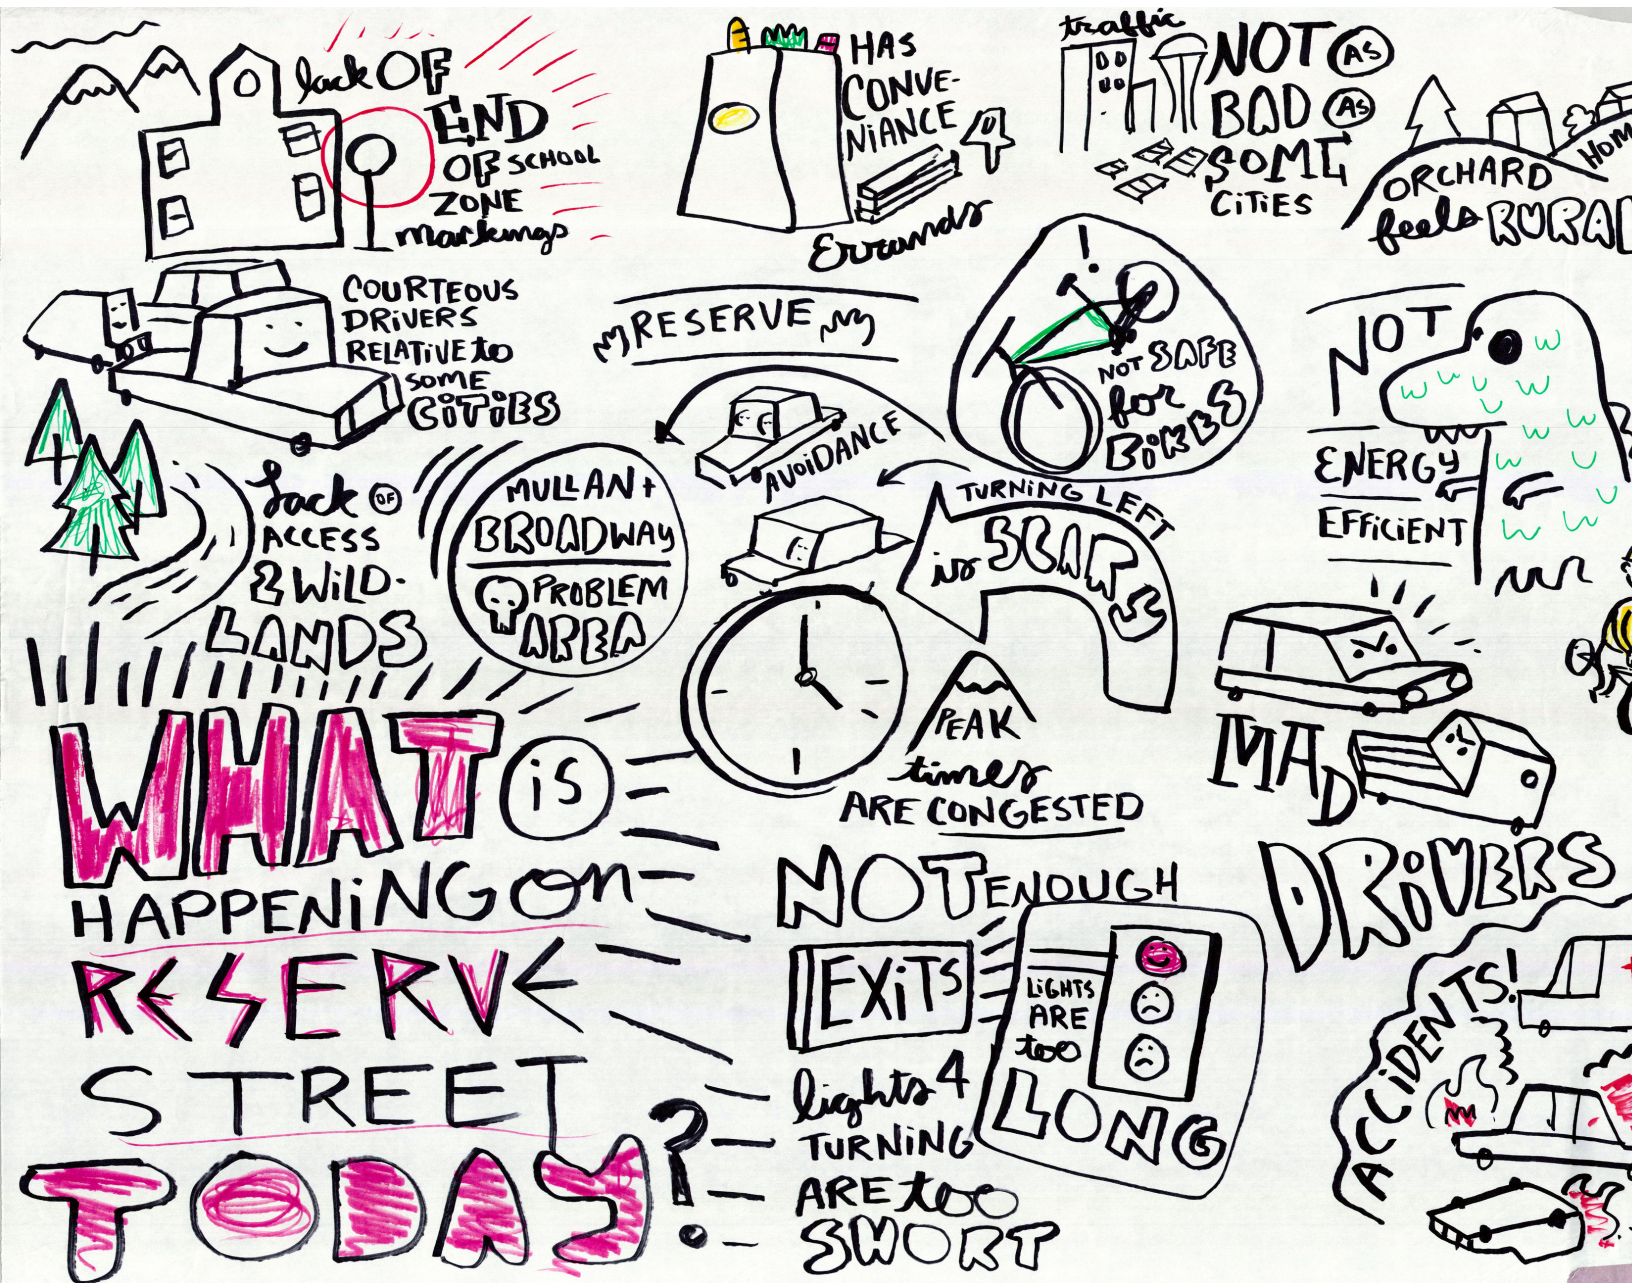 lack OF
END
OF SCHOOL
ZONE
markings
HAS
CONVE-
NiANCE
Errands
traffic
NOT AS
BAD AS
SOME
CiTiES
ORCHARD
feels RURAL
HOM
COURTEOUS
DRiVERS
RELATiVE to
SOME
CiTiES
RESERVE
AVOiDANCE
! NOT SAFE
for
BiKES
NOT
ENERGY
EFFiCiENT
Lack OF
ACCESS
2 WiLD-
LANDS
MULLAN +
BROADWAY
PROBLEM
AREA
TURNiNG LEFT
is SCARY
PEAK
times
ARE CONGESTED
MAD
DRiVERS
WHAT is
HAPPENiNG on
RESERVE
STREET
TODAY?
NOT ENOUGH
EXiTS
LiGHTS
ARE
too
LONG
lights 4
TURNiNG
ARE too
SHORT
ACCiDENTS!